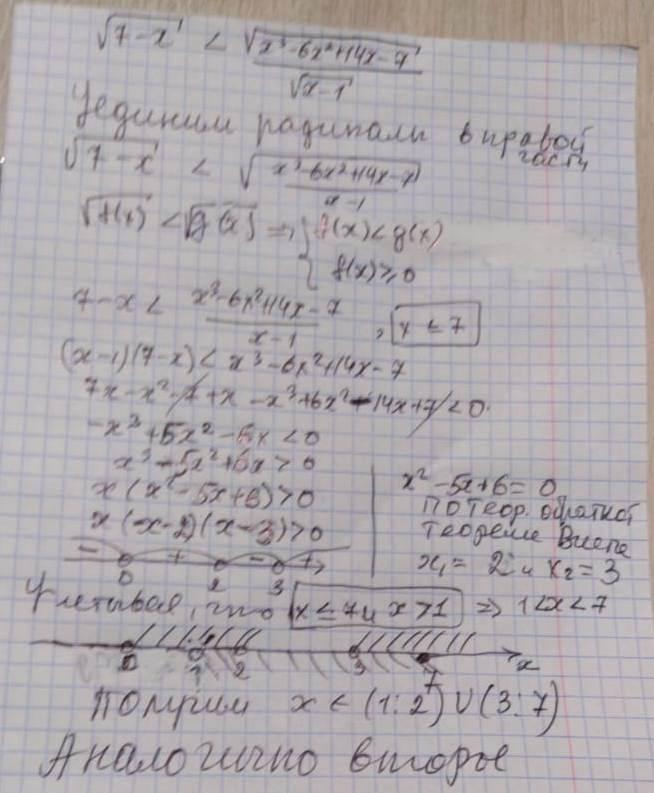 √7-x < √x³-6x²+14x-7
√x-1
Уединим радикалы в правой
части
√7-x < √x³-6x²+14x-7
x-1
√f(x) < √g(x) ⇒ { f(x)<g(x)
f(x)≥0
7-x < x³-6x²+14x-7
x-1 , x ≤ 7
(x-1)(7-x) < x³-6x²+14x-7
7x-x²-7+x-x³+6x²-14x+7<0.
-x³+5x²-6x<0
x³-5x²+6x>0
x(x²-5x+6)>0
x(x-2)(x-3)>0
x²-5x+6=0
По теор. обратной
теореме Виета
x₁= 2 и x₂=3
- + - +
0 2 3
Учитывая, что x≤7 и x>1 ⇒ 1<x<7
0 1 2 3 7 x
Получим x ∈ (1:2)∪(3:7)
Аналогично второе